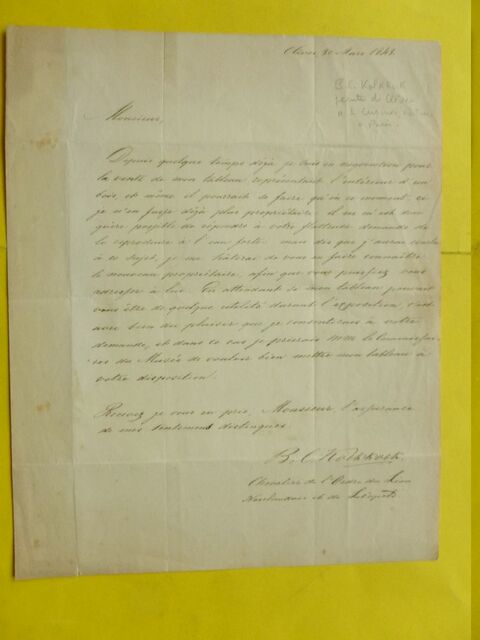 Clèves, 30 Mars 1843.
B. C. Koekkoek
peintre à Clèves
Paris.
Monsieur,
Depuis quelque temps déjà je suis en négociation pour
la vente de mon tableau représentant l'intérieur d'un
bois, et même il pourrait se faire qu'en ce moment, ce
je n'en fusse déjà plus propriétaire. il ne m'est donc
guère possible de répondre à votre flatteuse demande de
le reproduire à l'eau forte. mais dès que j'aurai
à ce sujet, je me hâterai de vous en faire connaître
le nouveau propriétaire, afin que vous puissiez vous
adresser à lui. En attendant si mon tableau pouvait
vous être de quelque utilité durant l'exposition, c'est
avec bien du plaisir que je consentirais à votre
demande, et dans ce cas je prierais MM. les Commissai-
res du Musée de vouloir bien mettre mon tableau à
votre disposition.
Recevez je vous en prie, Monsieur l'assurance
de mes sentiments distingués
B. C. Koekkoek
Chevalier de l'Ordre du Lion
Néerlandais et de Léopold